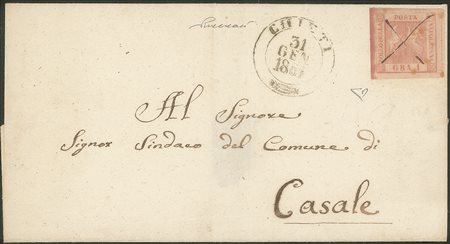 CHIETI
31
GEN
POSTA
GRA 1
Al Signore
Signor Sindaco del Comune di
Casale